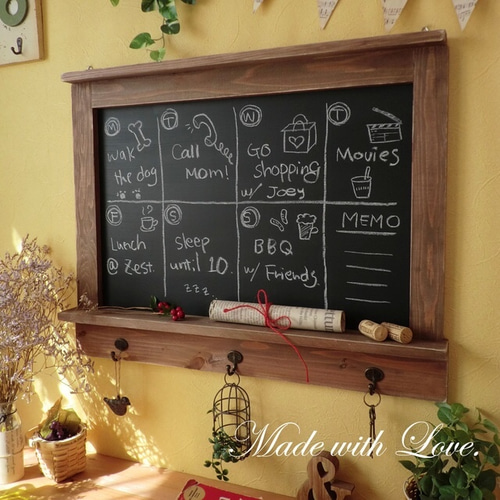 M
wak
the dog
T
Call
Mom!
W
GO
shopping
w/ Joey
T
Movies
F
Lunch
@ Zest.
S
sleep
until 10.
zzz..
S
BBQ
w/ Friends.
MEMO
Made with Love.